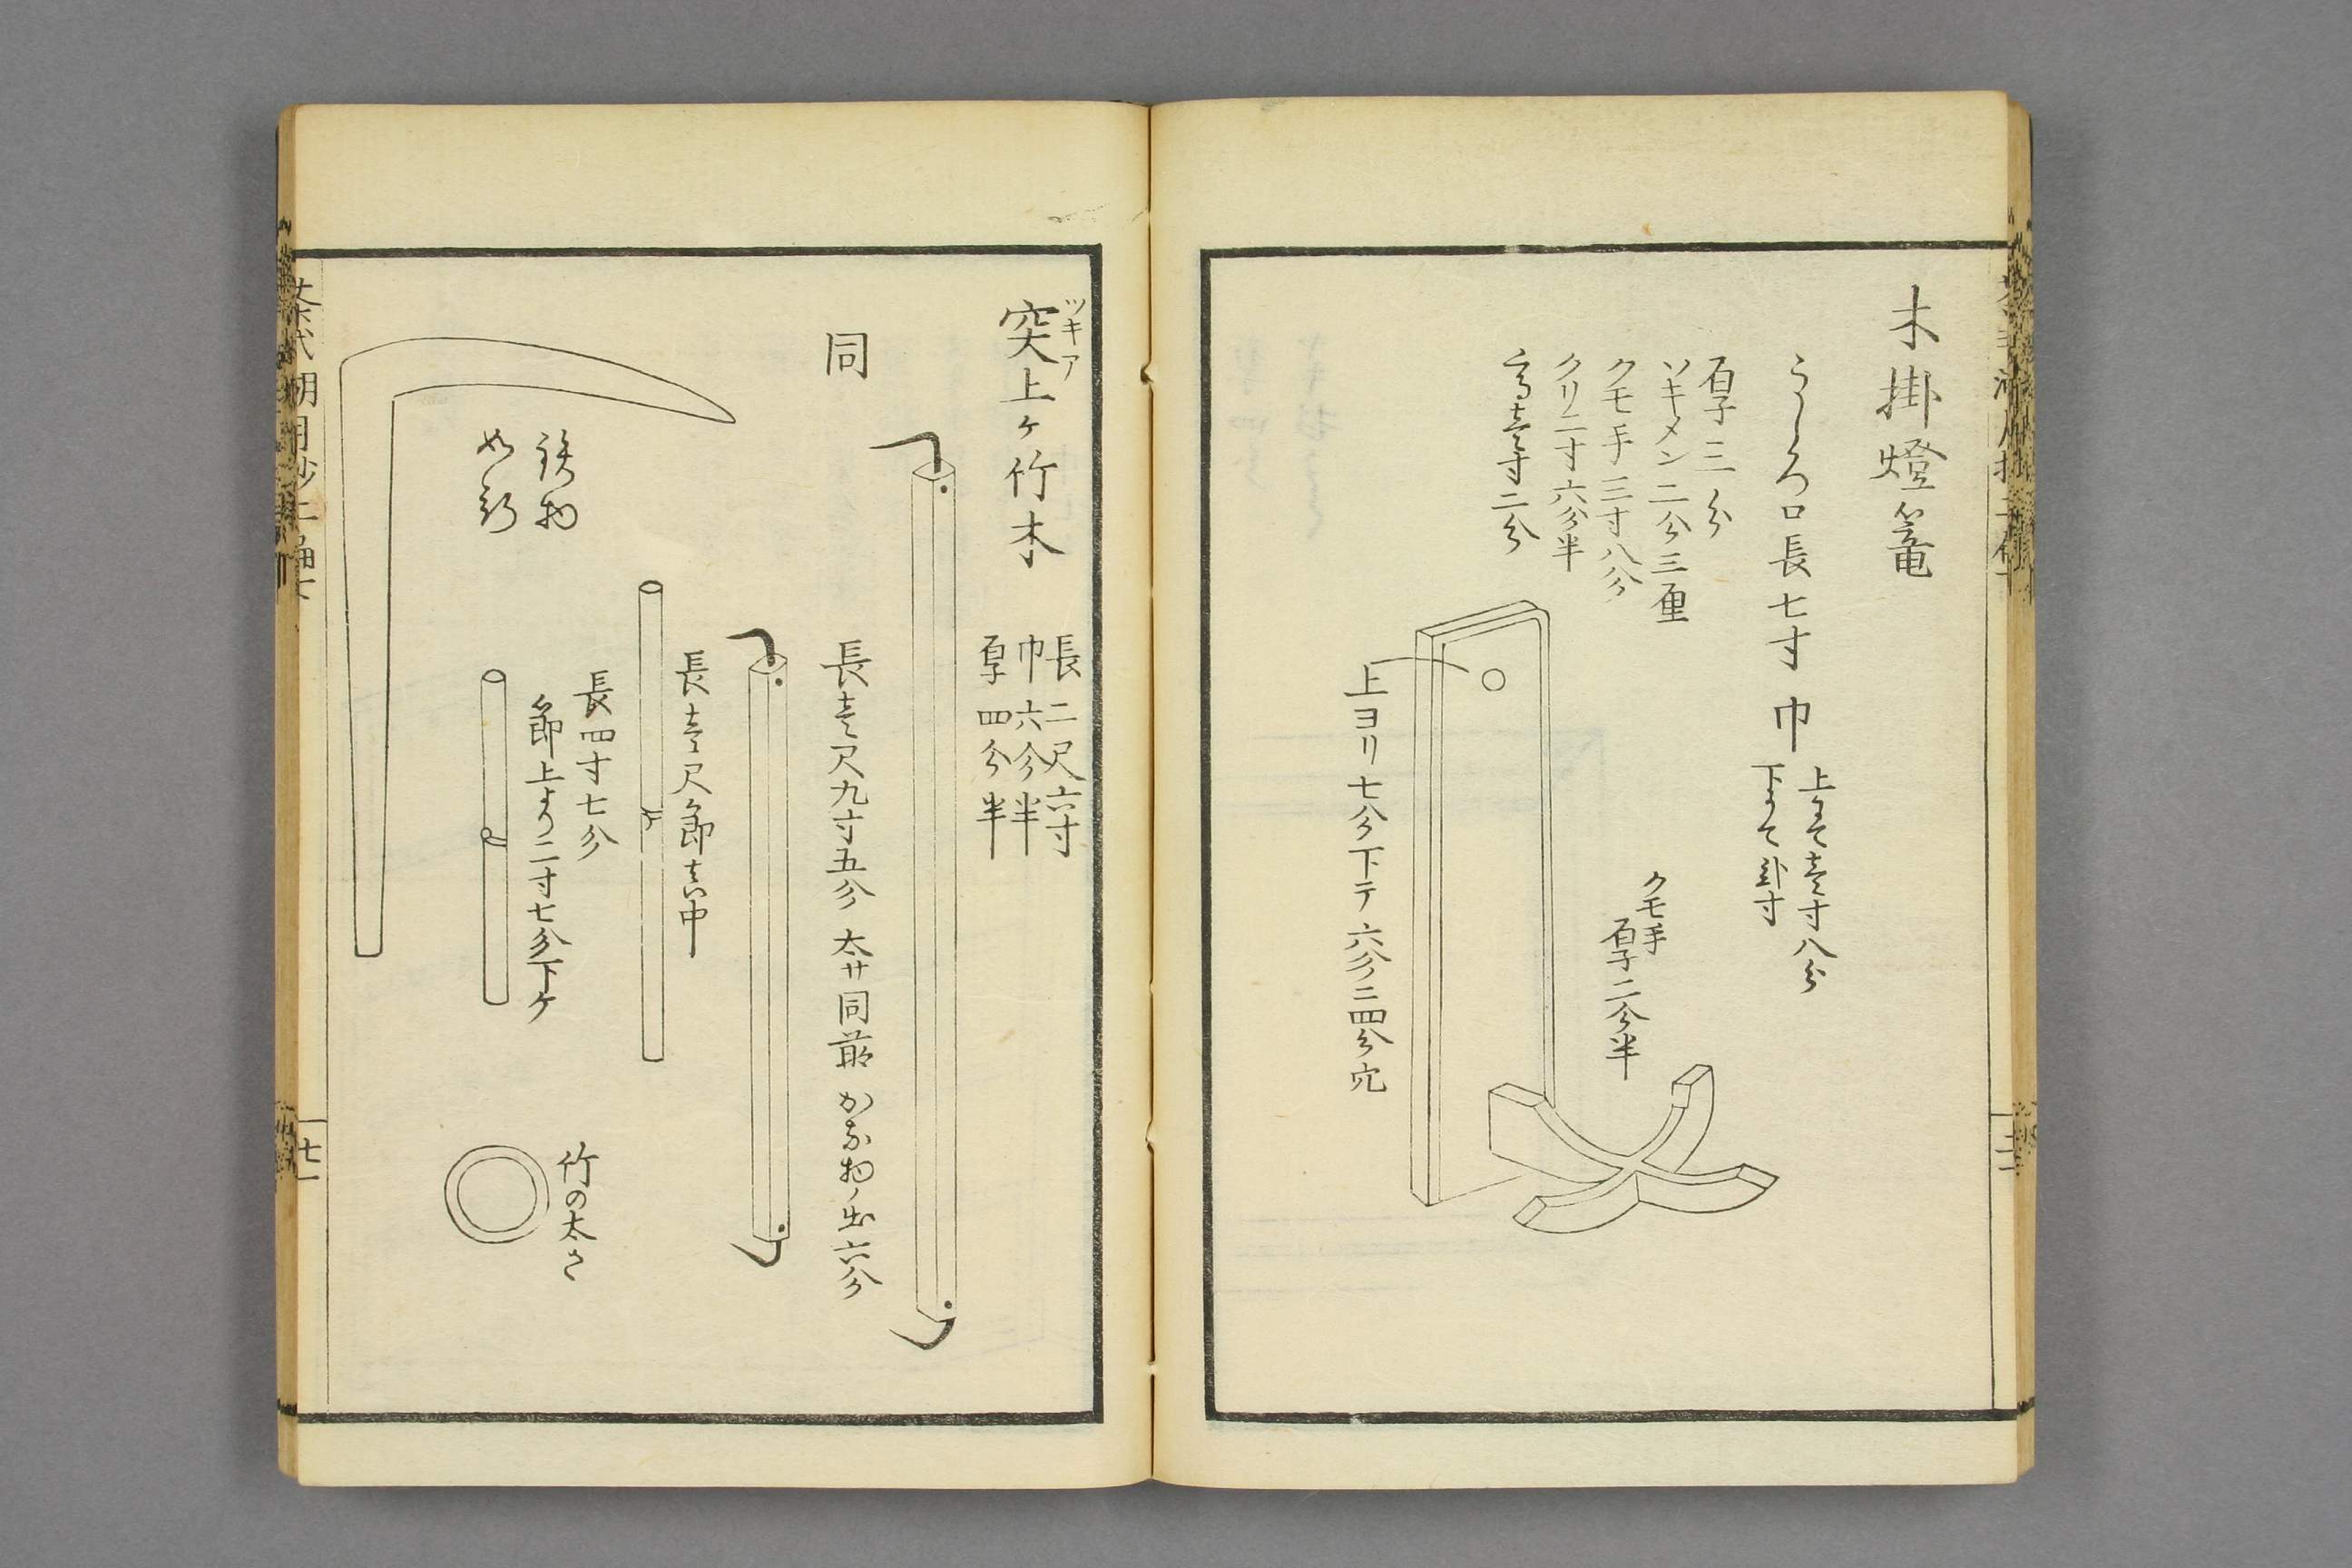 木掛燈篭
うしろ口長七寸 巾
上にて壱寸八分
下にて弐寸
厚三分
ソキメン二分三厘
クモ手三寸八分
クリ二寸六分半
高壱寸二分
クモ手
厚二分半
上ヨリ七分下テ六分ニ四分穴
突上ヶ竹木
ツキア
長二尺六寸
巾六分半
厚四分半
同
長壱尺九寸五分 太サ同前 かな物ノ出六分
長壱尺節真中
長四寸七分
節上より二寸七分下ケ
鉄物
如斯
竹の太さ
七